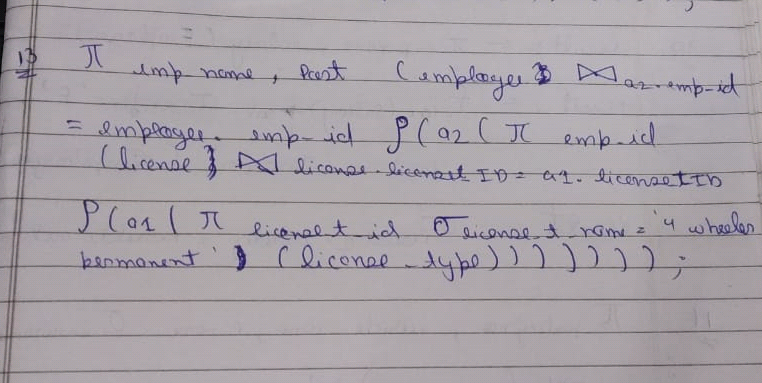 13 π emp_name, Post (employee ⋈ a2.emp-id
= employee. emp_id ρ(a2( π emp_id
(license ⋈ license.licenset ID = a1.licensetID
ρ(a1( π license t_id σ license_t_name = '4 wheeler
permanent' (license_type)))))))) ;